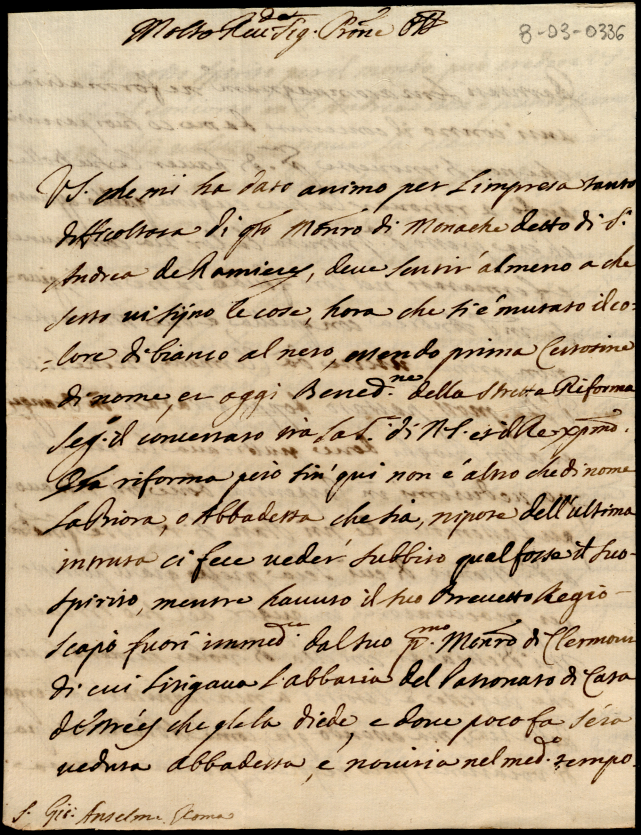 Molto Reu.do Sig. Prone
8-03-0336
VS. che mi ha dato animo per l'impresa tanto
difficoltosa di qto Monro di Monache detto di S.
Andrea de Ramieres, deve sentir' almeno a che
sesto vi sijno le cose, hora che si è mutato il co-
-lore di bianco al nero, essendo prima Certosine
di nome, et oggi Bened.ne della stretta Riforma
seg.o il concertato tra la S.tà di N.S. et il Re xpmo.
Qta riforma però sin' qui non è altro che di nome
La Priora, o Abbadessa che sia, nipote dell'ultima
intrusa ci fece veder' subbito qual fosse il suo
spirito, mentre havuto il suo Brevetto Regio
scapò fuori immed.te dal suo p.mo Monro di Clermont
di cui litigava l'abbatia del Patronato di Casa
d'Estrées che gle la diede, e dove poco fa s'era
veduta abbadessa, e novitia nel med.o tempo.
S. Gio: Anselmi. Roma